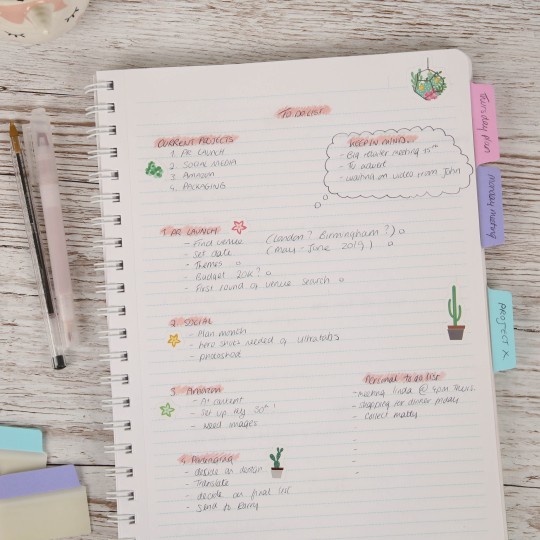 TO DO LIST
CURRENT PROJECTS
1. PR LAUNCH
2. SOCIAL MEDIA
3. AMAZON
4. PACKAGING
KEEP IN MIND
- Big retailer meeting 15th
- TV advert
- waiting on video from John
1. PR LAUNCH
- Find venue (London? Birmingham?)
- Set date (May - June 2019)
- Themes
- Budget 20K?
- First round of venue search
2. SOCIAL
- Plan month
- hero shots needed of ultratabs
- photoshoot
3. Amazon
- A+ content
- Set up by 30th!
- need images
Personal to do list
- meeting Linda @ 4pm
- shopping for dinner
- Collect
4. Packaging
- decide on design
- Translate
- decide on final
- Send to
Thursday plan
Monday meeting
PROJECT X